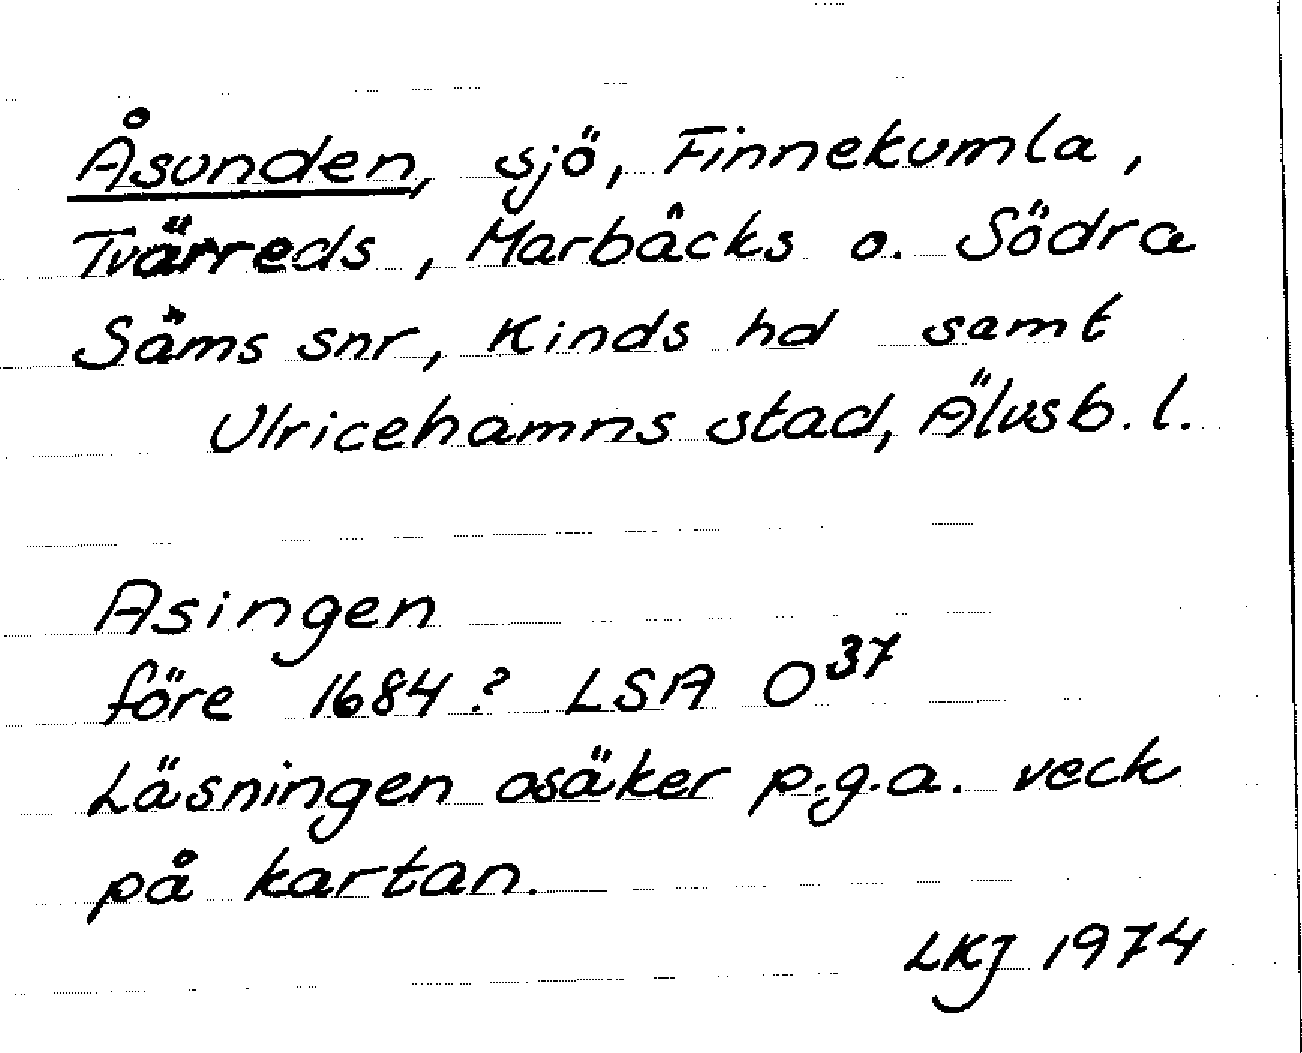 Åsunden, sjö, Finnekumla,
Tvärreds, Marbäcks o. Södra
Säms snr, Kinds hd samt
Ulricehamns stad, Älvsb. l.
Asingen
före 1684? LSA O³⁷
Läsningen osäker p.g.a. veck
på kartan.
LKJ 1974